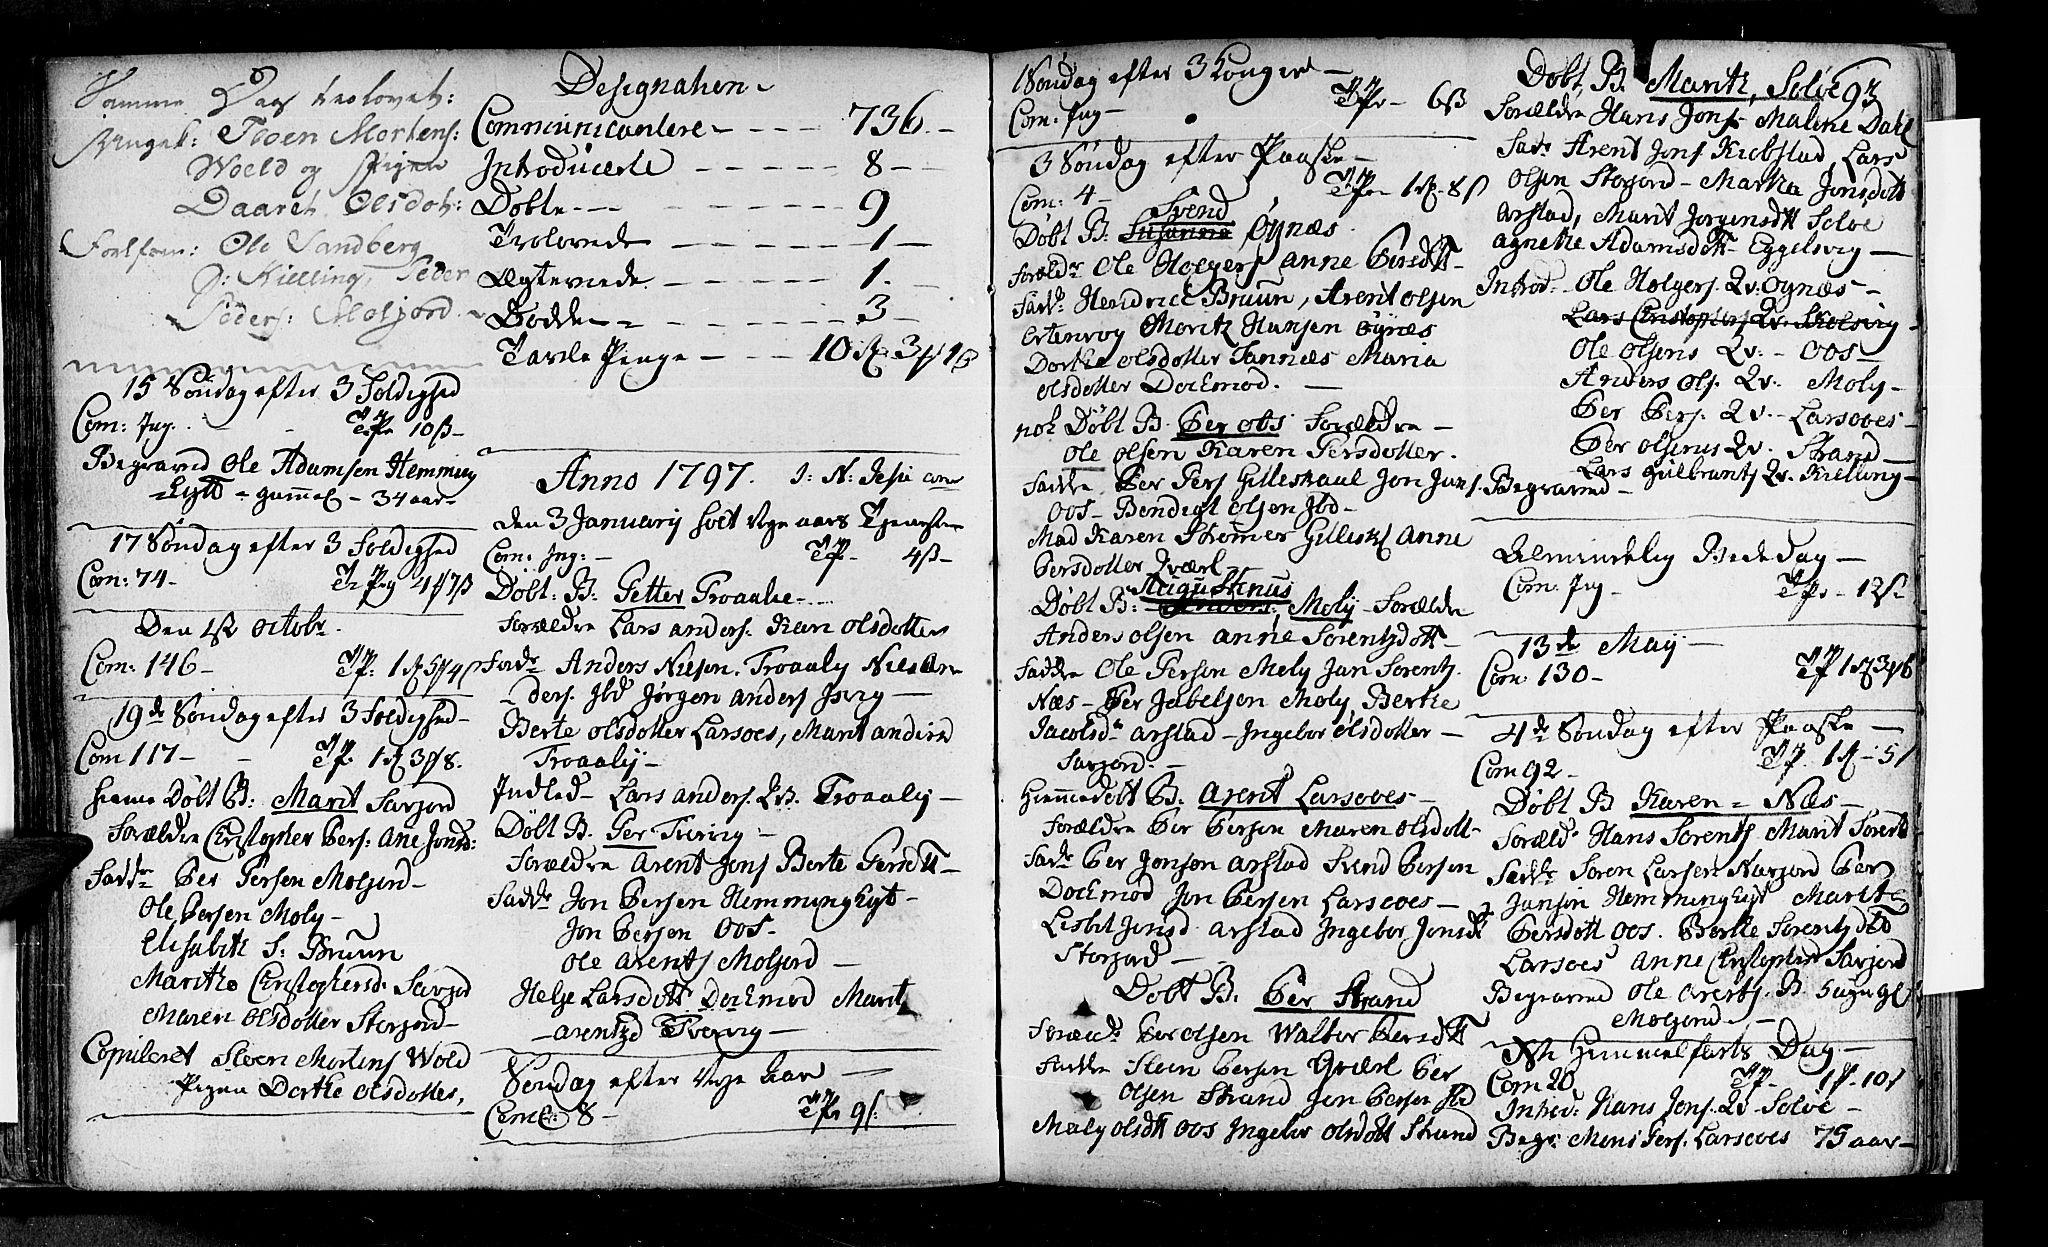 Samme Dag trolovet:
Ungek: Steen Mortens:
Wold og Pigen
Daaret Olsdot:
Forlfver: Ole Sandberg
p: Kielling, Peder
Peders: Moljord.
15 Søndag efter 3 foldighed
Com: Ing. Tp. 10 ß
Begraved Ole Adamsen Hemming
Eytt gammel 34 aar
17 Søndag efter 3 foldighed
Com: 74 -
Den 1st octobr.
Com: 146 -
19de Søndag efter 3 foldighed
Com 117 -
hieme Døbt B: Marit Sarjord
Forældre Christopher Pers: Ane Jonsd:
Faddre Per Persen Moljord
Ole Persen Moly
Elisabeth S: Bruun
Marithe Christophersd: Sarjord
Maren Olsdotter Storjord
Copuleret Steen Mortens Wold
Pigen Dorthe Olsdotter,
Designation
Communicantere - 736
Introducerte - 8
Døbte - 9
Trolovede - 1
Ægteviede - 1
Dødde - 3
Tavle Penge - 10
Anno 1797. I: N: Jesu
den 3 January holt Nye aars Tjeneste
Com: Ing: - Tp 4 ß
Døbt: B: Petter Troalie
Forældre Lars anders: Karn Olsdotter
Fadre Anders Nielsen Troaaly Niels An
ders: Ibd Jørgen anders
Berte olsdotter Larsoes, Marit
Troaaly
Indled Lars anders: Qv. Troaaly
Døbt B. Per Tvervig
Forældre Arent Jons Berte Persdtt
Faddre Jon Persen Hemminghyt
Jon Persen Oos
Ole Arents Moljord
Helge Larsdott Dochmod Marit
arentzd Tvervig
Søndag efter Nye aar
Com: 8 - Tp 9 ß
1 Søndag efter 3 Konger
Com: Ing - Tp 6 ß
3 Søndag efter Paaske
Com: 4 -
Svend
Døbt B. Susanna Øynæs
forældre Ole Holgers Anne Persdtt
Faddre Hendrick Bruun, Arent olsen
Moritz Hansen Øynæs
Dorthe Olsdotter Sannæs Maria
Olsdotter Dochmod.
nok Døbt B. Per oos Forældre
Ole Olsen Karen Persdotter.
Faddre Per Pers Gilleskaal Jon Jons
Oos - Bendigt Olsen Ibd
Mad Karen Strømer Gillesk Anne
Persdotter Qværl
Augustinus
Døbt B: Anders, Moly Forældre
Anders Olsen Anne Sorentzdott
Faddre Ole Person Moly Jan Sorentz
Næs Per Jabelsen Moly Berthe
Jacobsd: Arstad Ingebor Olsdotter
Sarjord
Hiemmedøbt B. Arent Larsoves
Forældre Per Persen Maren Olsdott
Fadre Per Jonson Arstad Svend Persen
Dochmod Jon Persen Larsoves
Lisbet Jonsd Arstad Ingebor Jonsd
Storjord
Døbt B. Per Strand
Forældre Per olsen Walbor Persdtt
Faddre Steen Persen Qværl Per
Olsen Strand Jon Persen Ibd
Maly olsdtt Oos Ingebor Olsdott Strand
Døbt B. Marith, Solve 93
Forældre Hans Jons Malene Dahl
Fadr Arent Jons Kiebstad, Lars
Olsen Storjord Martha Jonsdott
Arstad, Marit Jorgensdtt Solve
agnethe Adamsdott Eggelsvig
Introd: Ole Holgers Qv. Øynæs
Lars Christophers Qv. Skolsvig
Ole Olsens Qv. Oos
Anders Ols. Qv. Moly
Per Pers. Qv. Larsoves
Per Olsens Qv. Strand
Lars Gulbrants Qv. Kielling
Begraved
Almindelig Bededag
Com: Ing -
13de May
Com: 130 -
4de Søndag efter Paaske
Com 92 -
Døbt B Karen Næs
Foræld: Hans Sorents Marit Sorentz
Faddre Soren Larsen Narjord Per
Jansen Hemminghyt Marith
Persdott Oos. Berthe Sorentzdtt
Larsoes Anne Christophersd Sarjord
Begraved Ole Arents. B 5 ugr gl
Moljord
Chr Himmelfarts Dag
Com 20
Introd: Hans Jons. Qv Solve
Begr: Mons Pers. Larsoves 75 aar